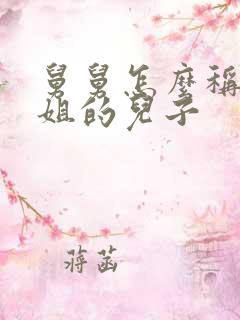 舅舅怎麼稱
姐的兒子
蔣菡